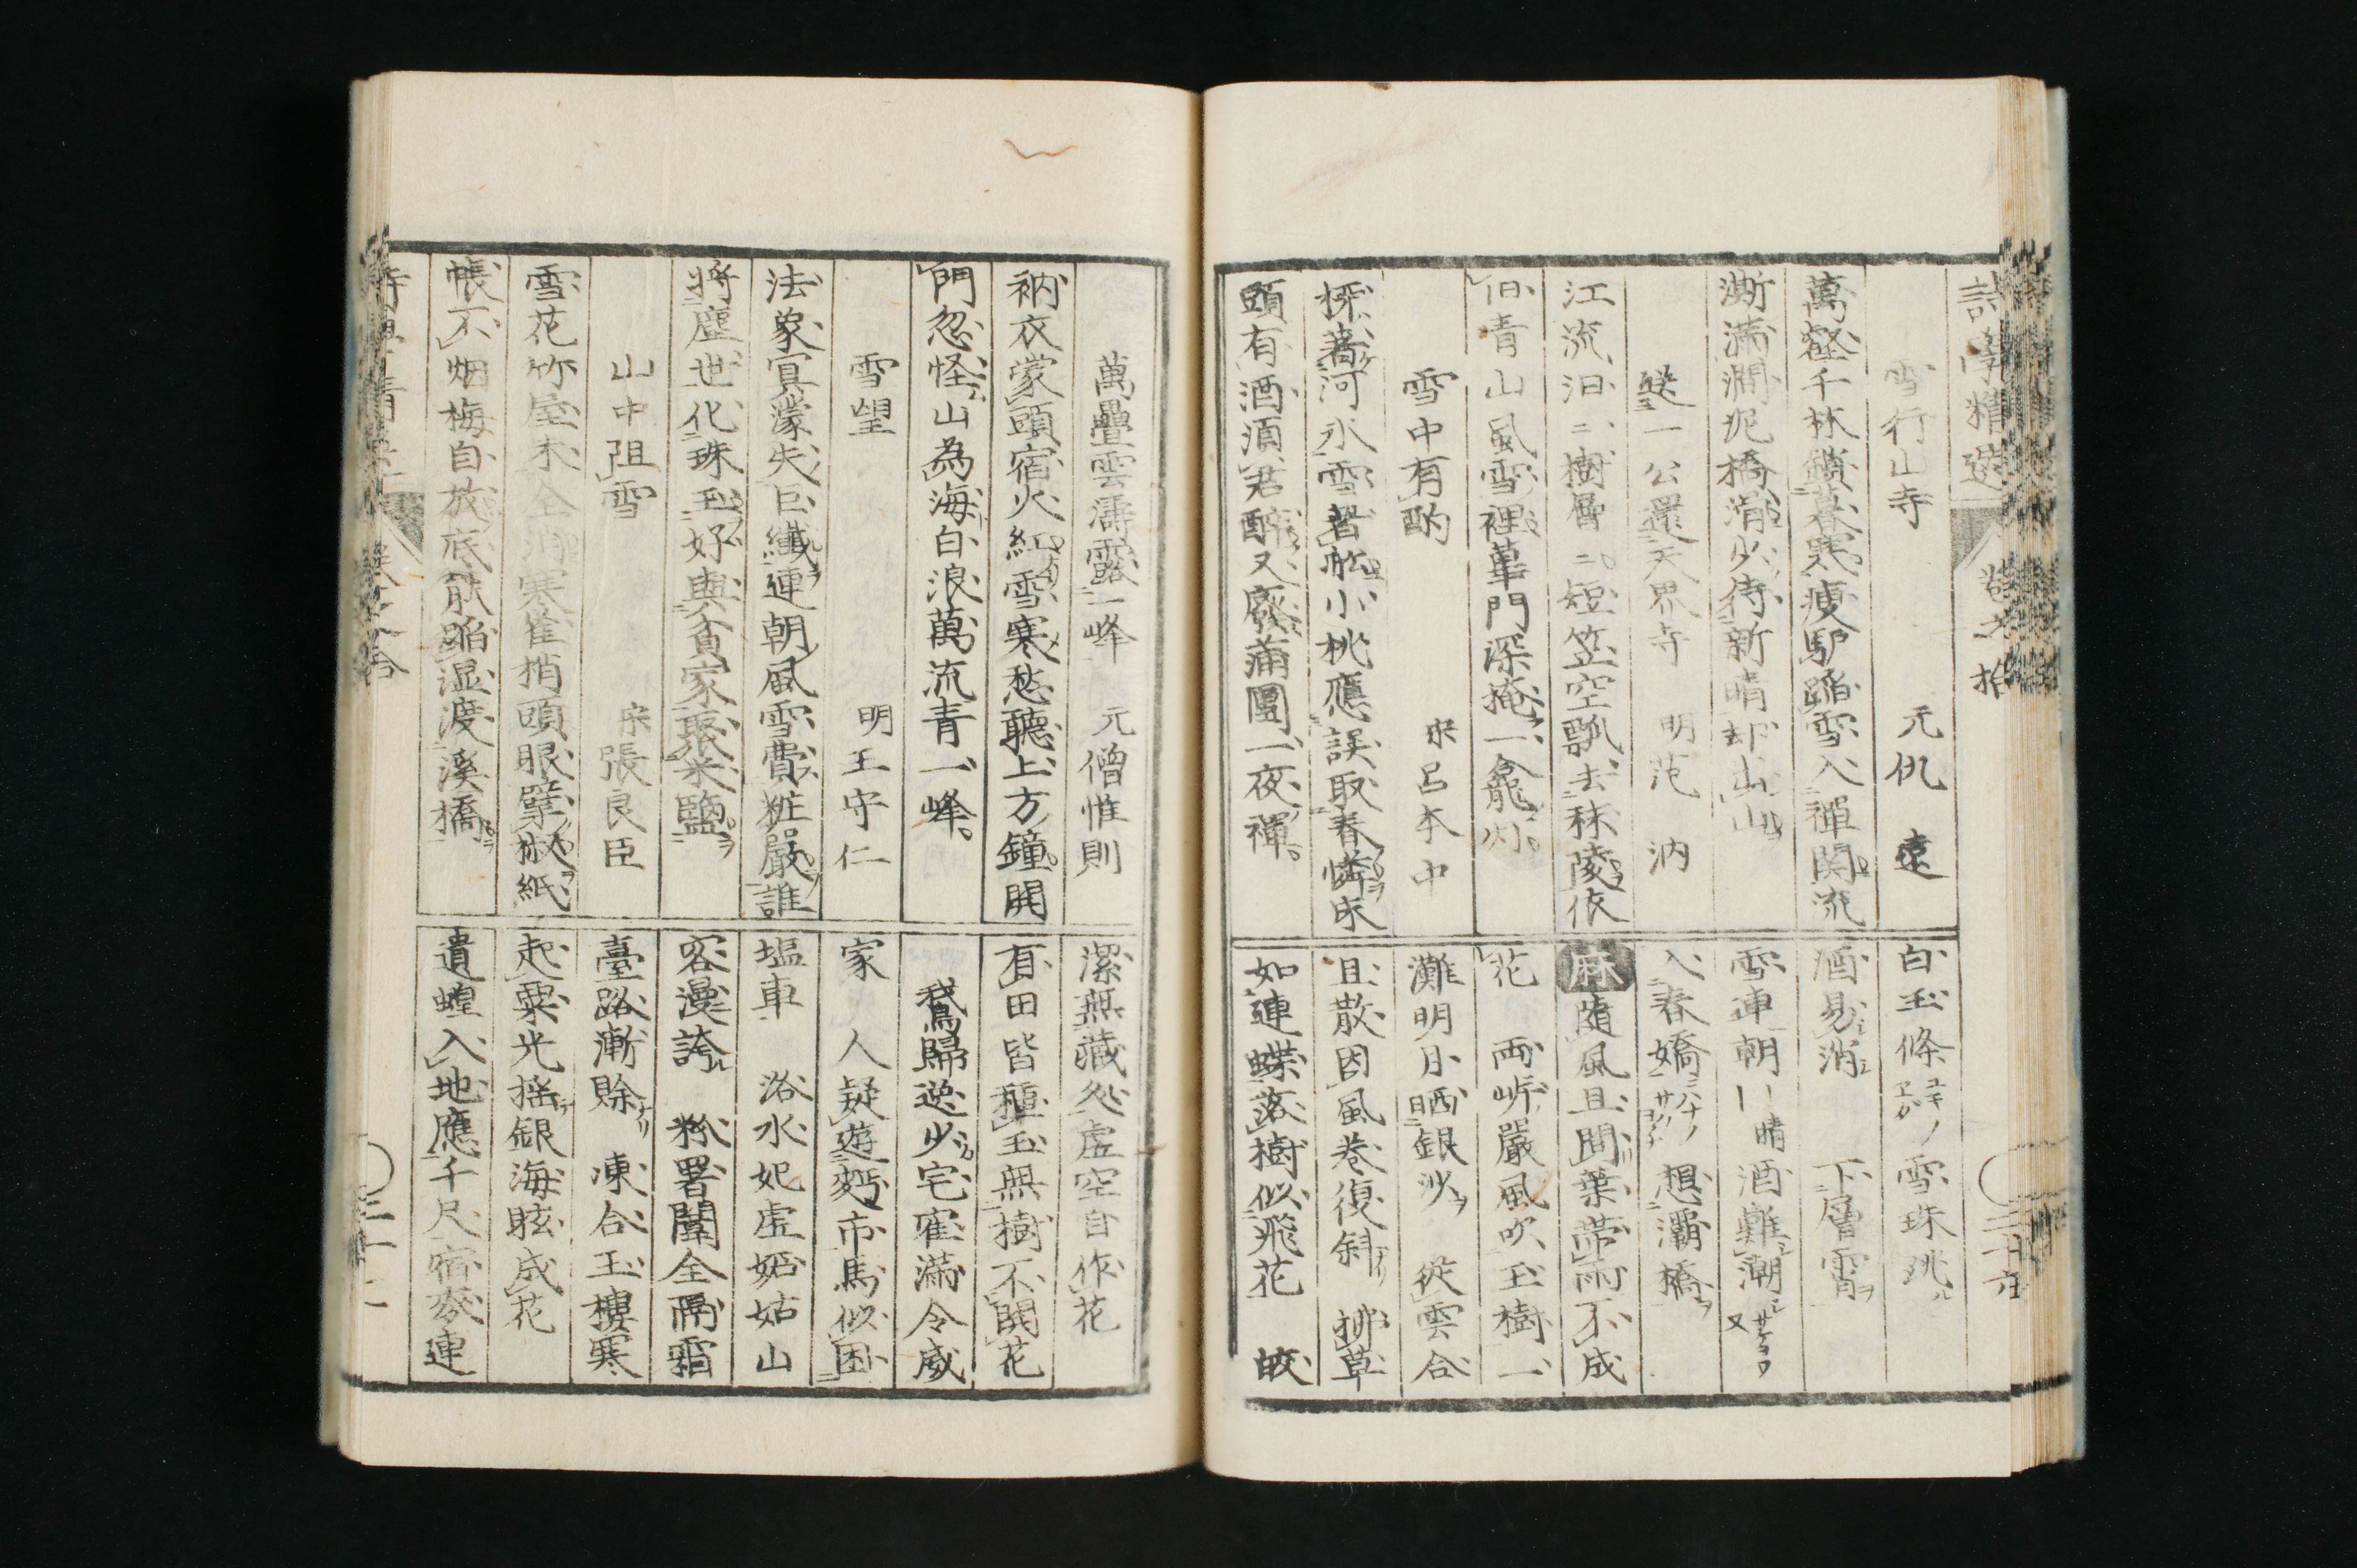 詩學精選 卷之拾
雪行山寺 元仇 遠
萬壑千林鎖暮寒瘦馿踏雪入禪関流
澌満澗泥橋滑少待新晴却出山
送一公還天界寺 明范 汭
江流汩二樹層二短笠空瓢去秣陵依
旧青山風雪裡蓽門深掩一龕灯
雪中有酌 宋呂本中
探蓍河氷雪著舩小桃應誤取春憐床
頭有酒須君醉又廢蒲團一夜禪
白玉條 雪珠跳
酒易消 下層霄
雪連朝 晴 酒難潮 又
入春嬌 想灞橋
麻 随風且間葉帯雨不成
花 両岍嚴風吹玉樹一
灘明月晒銀沙 従雲合
且散因風巻復斜 拂草
如連蝶落樹似飛花 皎
三十六
萬疊雲濤露一峰 元僧惟則
衲衣蒙頭宿火紅雪寒愁聽上方鐘開
門忽怪山為海白浪萬流青一峰
雪望 明王守仁
法象冥濛失巨纖連朝風雪費粧嚴誰
將塵世化珠玉好與貧家聚米鹽
山中阻雪 宋張良臣
雪花竹屋未全消寒雀梢頭眼擘紙
帳不烟梅自放底能踏湿度溪橋
潔無藏処虚空自作花
有田皆種玉無樹不開花
鵞歸逆少宅寉滿令威
家 人疑遊麪市馬似困
塩車 洛水妃虚妬姑山
客漫誇 粉署闈全隔霜
臺路漸賒 凍合玉樓寒
起粟光揺銀海眩成花
遺蝗入地應千尺宿麥連